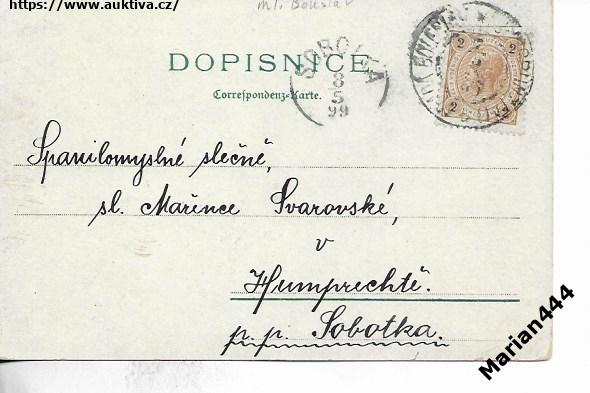 https://www.auktiva.cz/
ml. Boleslav
DOPISNICE
Correspondenz-Karte.
SOBOTKA
8
5
99
2 2
2 2
Spanilomyslné slečně,
sl. Mařence Svarovské,
v
Humprechtě.
p. p. Sobotka.
Marian444